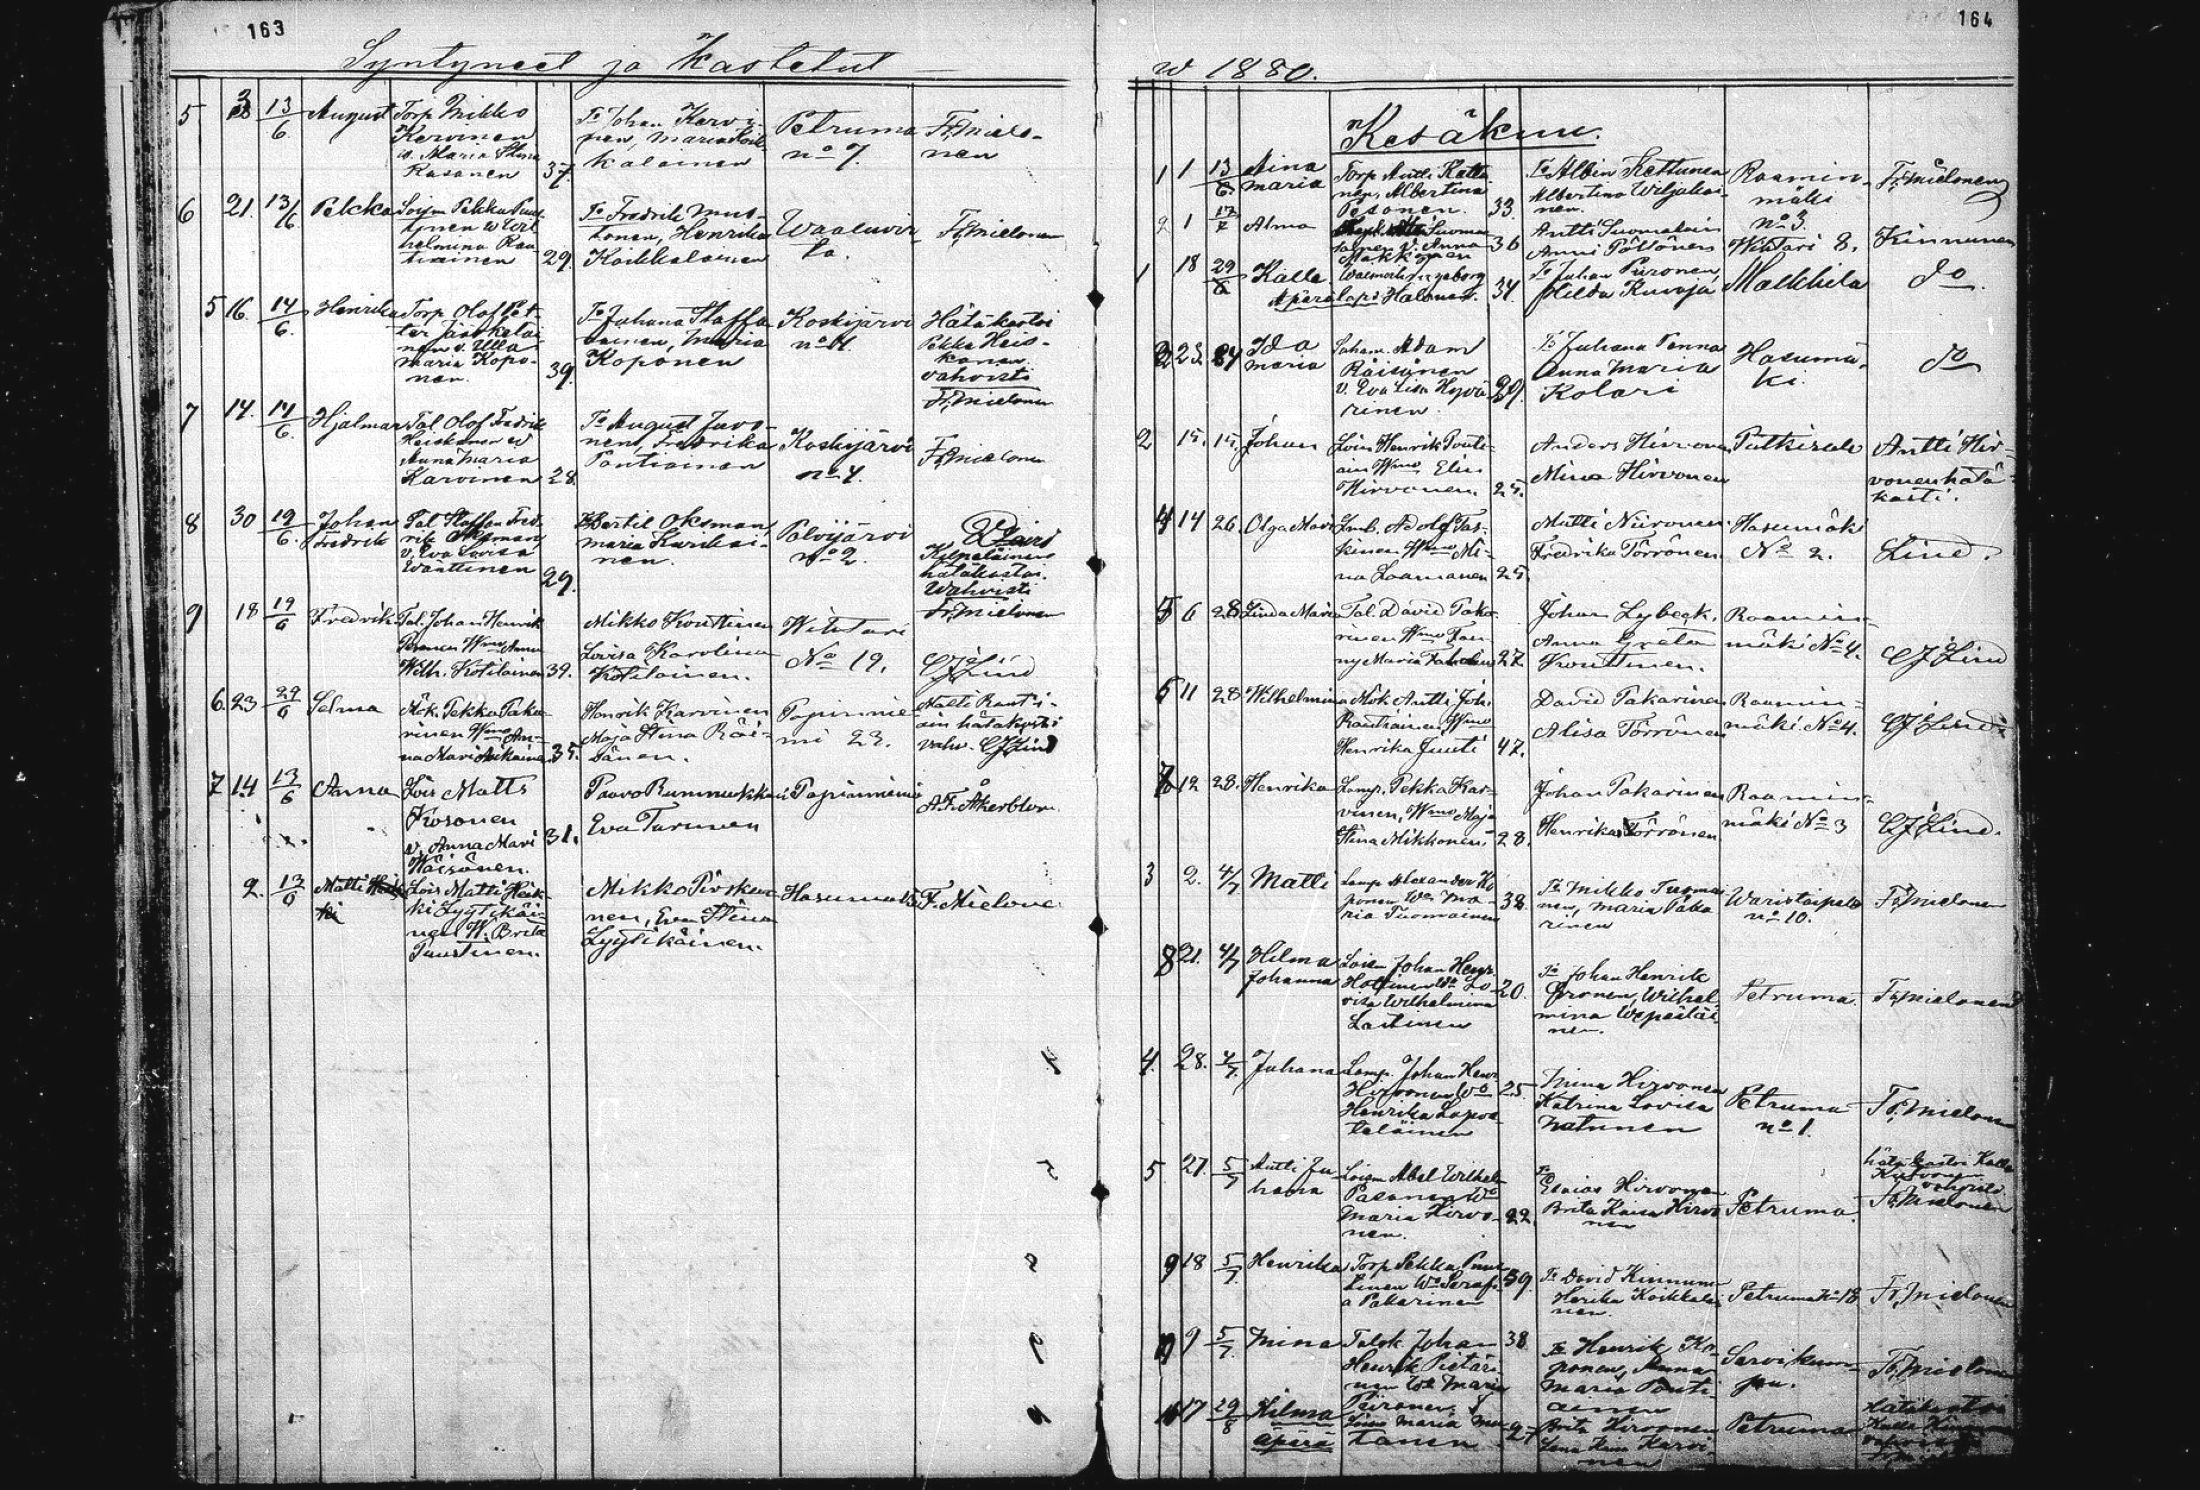 163
Syntyneet ja Kastetut
5 3 13/6 August Torp Mikko
Kervinen
v. Maria Stina
Rasanen 37.
To Johan Kervi-
nen, Maria
kalainen
Petruma
no 7.
Fr. Mielo-
nen
6 21. 13/6 Pekka Loism Pekka Puus-
tinen w Wil
helmina Rau
tiainen 29.
To Fredrik Mus-
tonen, Henrika
Koikkalainen
Waaluvir-
ta.
Fr. Mielonen
5 16. 14/6. Henrika Torp Olof Pet-
ter Jääskeläi
nen v. Ulla
Maria Kopo-
nen. 39.
To Juhana Staffa
nainen, Maria
Koponen
Koskijärvi
no 11.
Hätäkastoi
Pekka Heis-
kanen
vahvisti
Fr. Mielonen
7 14. 14/6. Hjalmar Tal. Olof Fredrik
Heiskanen w
Anna Maria
Karvinen 28.
To August Juvo-
nen, Fredrika
Pontiainen
Koskijärvi
no 4.
Fr. Mielonen
8 30 19/6. Johan
Fredrik
Tal Staffan Fred-
rik Oksman
v. Eva Lovisa
Wänttinen 29.
Bertil Oksman,
Maria Karikai-
nen.
Palvijärvi
No 2.
Kilpeläinen
hätäkastoi.
Wahvisti
Fr. Mielonen
9 18 19/6 Fredrik Tal. Johan Henrik
Wmo Anna
Wilh. Kotilainen 39.
Mikko Konttinen
Lovisa Karolina
Kotilainen.
Wihtari
No 19.
CJ Lind
6. 23 29/6 Selma Mök. Pekka Paka-
rinen Wmo An-
na Mari 35.
Henrik Karvinen
Maja Stina Räi-
sänen.
Papinnie-
mi 23.
Matti Rauti-
ain hätäkasti
vahv. CJ Lind
7 14 13/6 Anna Lois Matts
Kosonen
v. Anna Mari
Wäisänen. 31.
Paavo Rummukkain
Eva Turunen
Papinniemi
A.F. Åkerblom
2. 13/6 Matti Heik
ki
Lois Matti Heik-
ki Lyytikäi-
nen W. Brita
Puustinen.
Mikko Pirska-
nen, Eva Stina
Lyytikäinen.
Hasumäki
F. Mielone

164
w 1880.
Kesäkuu.
1 1 13/6 Aina
Maria
Torp Antti Kettu-
nen, Albertina
Pesonen. 33.
To Albin Kettunen
Albertina Wiljakai-
nen.
Raamin-
mäki
no 3.
Fr. Mielonen
2 1 17/7 Alma
Suoma-
lainen v. Anna
Makkonen 36
Antti Suomalain
Anni Pöllönen
Wihtari 8.
Kinnunen
1 18 29/6 Kalle
Äpärälapsi
Ingeborg
Halonen. 34.
To Juhan Piironen,
Hilda Kuvaja
Malkkila
do
2 23. 24 Ida
Maria
Laham. Adam
Räisänen
v. Eva Lisa Hyvä-
rinen. 29.
To Juhana Penna
Anna Maria
Kolari
Hasumä-
ki.
do
2 15. 15. Johan Lois Henrik Ponti-
ain Wmo Elin
Hirvonen. 25.
Anders Hirvonen
Mina Hirvonen
Putkisalo
Antti Hir-
vonen hätä-
kasti.
4 14 26. Olga Mari Adolf Tas-
kinen Wmo Mi-
na Laamanen 25.
Matti Niironen
Fredrika Törrönen
Hasumäki
No 2.
Lind.
5 6 28 Linda Maria Tal. David Paka-
rinen Wmo Fan-
ny Maria 27.
Johan Lybeck.
Anna Greta
Konttinen.
Raamin-
mäki No 4.
CJ Lind
6 11 28 Wilhelmina Mök Antti Joh.
Rautiainen Wmo
Henrika Juuti 47.
David Pakarinen
Alisa Törrönen
Raamin-
mäki. No 4.
CJ Lind.
7 12 28. Henrika Lamp. Pekka Kar-
vinen, Wmo Maja
Stina Mikkonen. 28.
Johan Pakarinen
Henrika Törrönen
Raamin-
mäki No 3
CJ Lind.
3 2. 4/7 Matti Lamp Alexander Ko
ponen Wo Ma-
ria Tuomainen 38.
To Mikko Tuomai-
nen, Maria Paka
rinen
Waristaipale
no 10.
Fr. Mielonen
8 21. 4/7 Hilma
Johanna
Loism Johan Henr.
Wo Lo-
visa Wilhelmina
Laitinen 20.
To Johan Henrik
Wilhel-
mina Wepsäläi-
nen.
Petruma.
Fr. Mielonen
4. 28. 4/7. Juhana Lamp. Johan Henr.
Hirvonen Wo
Henrika Lapve-
teläinen 25
Mina Hirvonen
Katrina Lovisa
Natunen
Petruma
no 1.
Fr. Mielonen
5. 27. 5/7 Antti Ju
hana
Loism Abel Wilhel-
Pasanen Wo
Maria Hirvo-
nen. 22.
To
Esaias Hirvonen
Brita Kaisa Hirvo
nen
Petruma.
hätä kastoi Kalle
Fr. Mielonen
9 18 5/7. Henrika Torp Pekka Puus
tinen Wo Serafi-
a Pakarinen 39.
To David Kinnunen
Henrika Koikkalai
nen
Petruma No 18
Fr. Mielonen
9 5/7. Mina Talok Johan
Henrik Pietäri-
nen Wo Maria
Piironen. 38
To Henrik Ko-
ponen, Anna
Maria Ponti
ainen
Sarvikum-
pu.
Fr. Mielonen
17 29/8 Hilma
äpärä
Maria Mus-
tonen 27
Brita Hirvonen
Karvi-
nen
Petruma
Hätäkastoi
Kalle